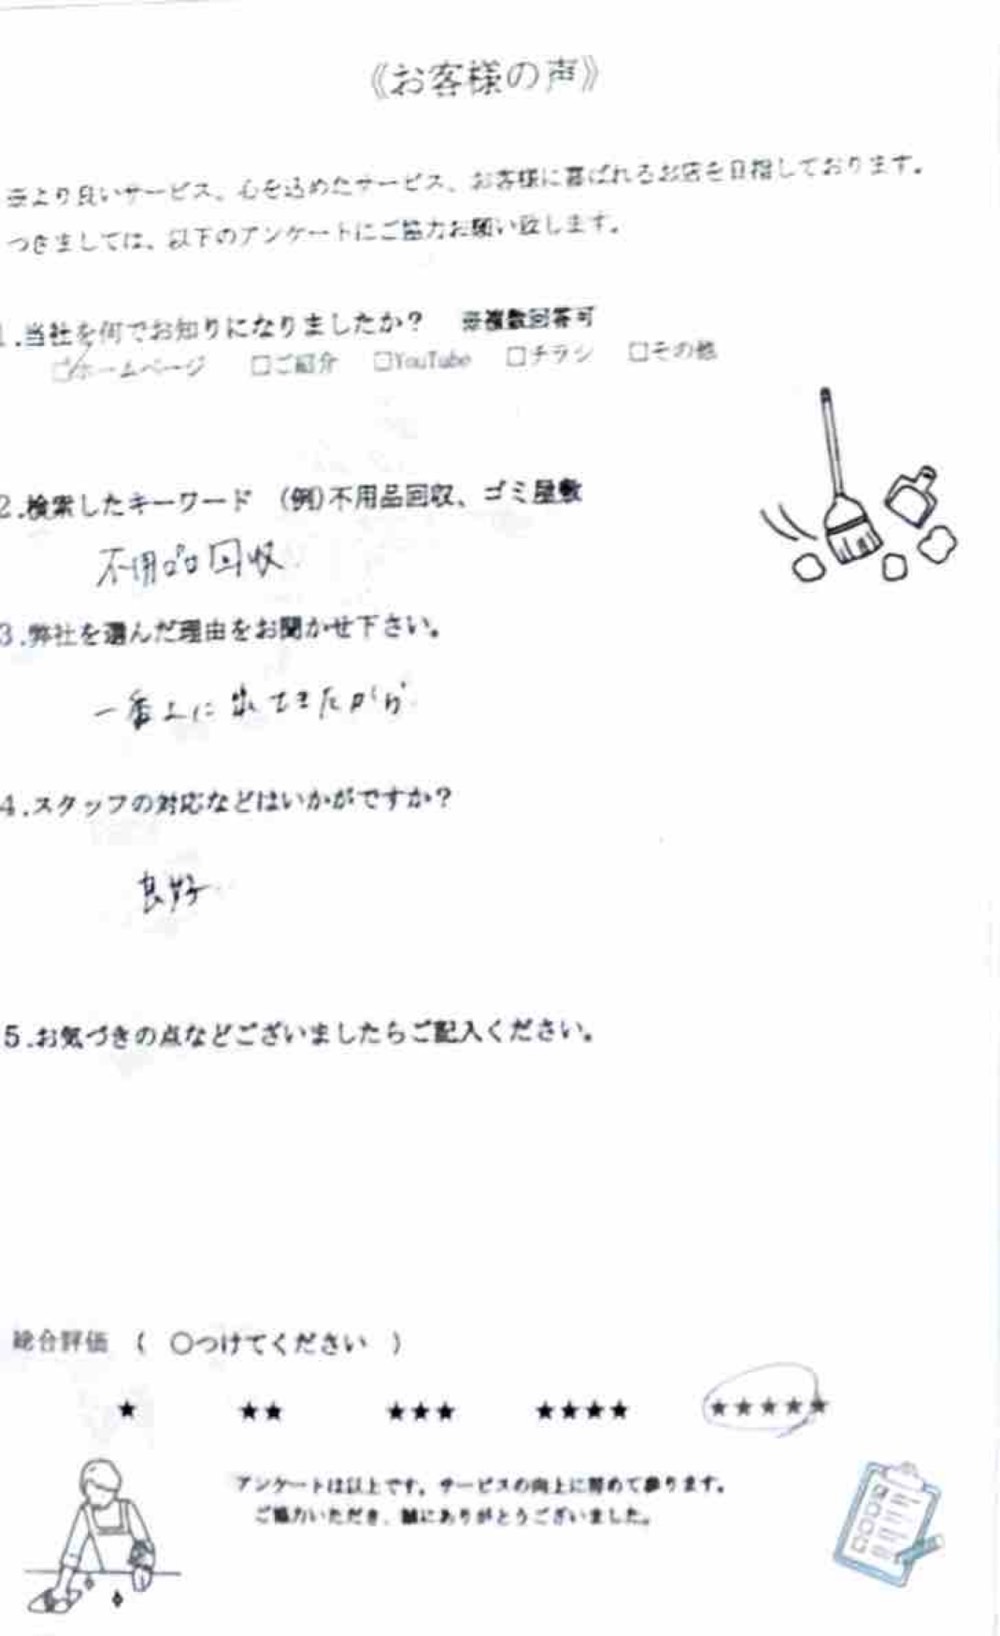 《お客様の声》
※より良いサービス、心を込めたサービス、お客様に喜ばれるお店を目指しております。
つきましては、以下のアンケートにご協力お願い致します。
1.当社を何でお知りになりましたか？ ※複数回答可
☑ホームページ □ご紹介 □YouTube □チラシ □その他
2.検索したキーワード (例)不用品回収、ゴミ屋敷
不用品回収
3.弊社を選んだ理由をお聞かせ下さい。
一番上に出てきたから
4.スタッフの対応などはいかがですか？
良好
5.お気づきの点などございましたらご記入ください。
総合評価 ( ○つけてください )
★ ★★ ★★★ ★★★★ ★★★★★
アンケートは以上です。サービスの向上に努めて参ります。
ご協力いただき、誠にありがとうございました。